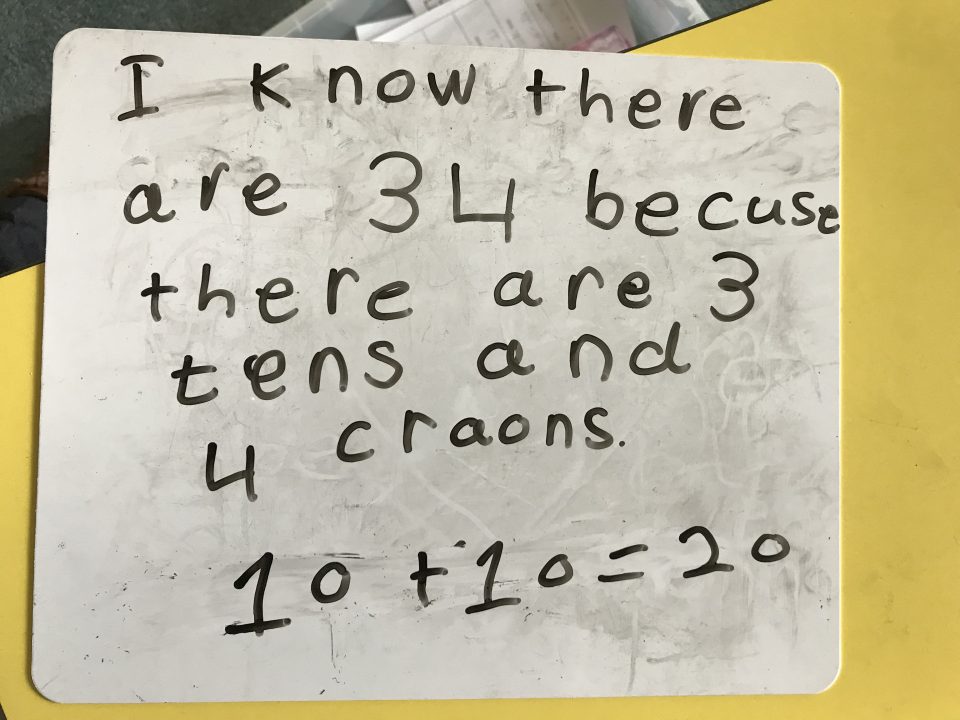 I know there
are 34 becuse
there are 3
tens and
4 craons.
10 + 10 = 20